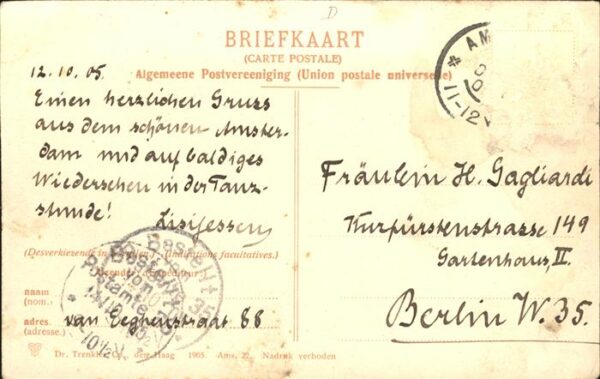 D
BRIEFKAART
(CARTE POSTALE)
Algemeene Postvereeniging (Union postale universelle)
12.10.05.
Einen herzlichen Gruss
aus dem schönen Amster-
dam und auf baldiges
Wiedersehen in der Tanz-
stunde!
Lisi Jessen
AM
11-12V
Fräulein H. Gagliardi
Kurfürstenstrasse 149
Gartenhaus, II.
Berlin W. 35.
(Desverkiezende in te vullen) - (Indications facultatives.)
Bestellt
vom
Postamte
35
10½V.
naam
(nom.)
adres.
(adresse.)
van Eeghenstraat 88
Dr. Trenkler Co., den Haag 1905. Ams. 27. Nadruk verboden